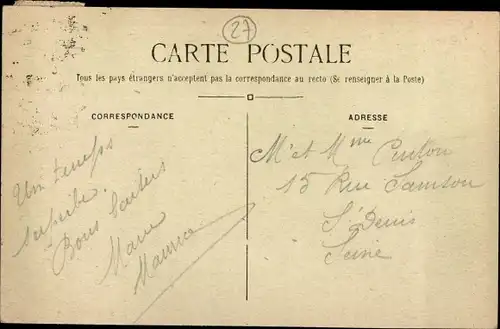 27
CARTE POSTALE
Tous les pays étrangers n'acceptent pas la correspondance au recto (Se renseigner à la Poste)
CORRESPONDANCE
Un temps
superbe.
Bons baisers
Marie
Maurice
ADRESSE
Mr et Mme
15 Rue Samson
St Denis
Seine